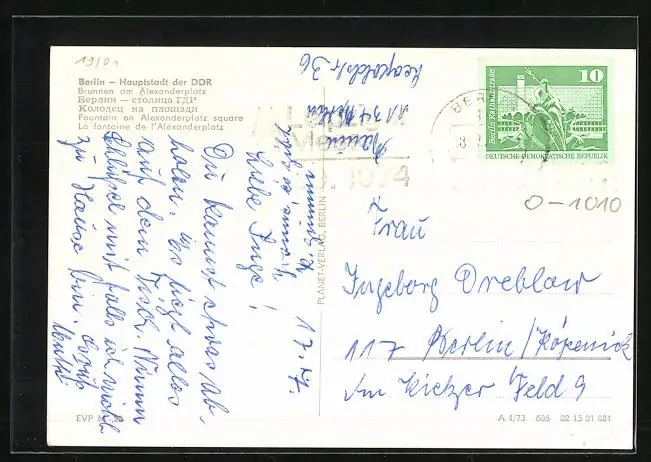 Berlin – Hauptstadt der DDR
Brunnen am Alexanderplatz
Берлин – столица ГДР
Колодец на площади
Fountain on Alexanderplatz square
La fontaine de l'Alexanderplatz
17. 7.
Liebe Inge!
Du kannst etwas ab-
holen. Es liegt alles
auf dem Tisch. Nimm
Schlüssel mit falls ich nicht
zu Hause bin. Gruß
EVP M
PLANET-VERLAG, BERLIN
1134 Berlin
Leopoldstr 36
1974
BER
10
Berlin · Rathausstraße
DEUTSCHE DEMOKRATISCHE REPUBLIK
0-1010
Frau
Ingeborg Dreblow
117 Berlin/Köpenick
Am Kietzer Feld 9
A 4/73 606 02 15 01 081